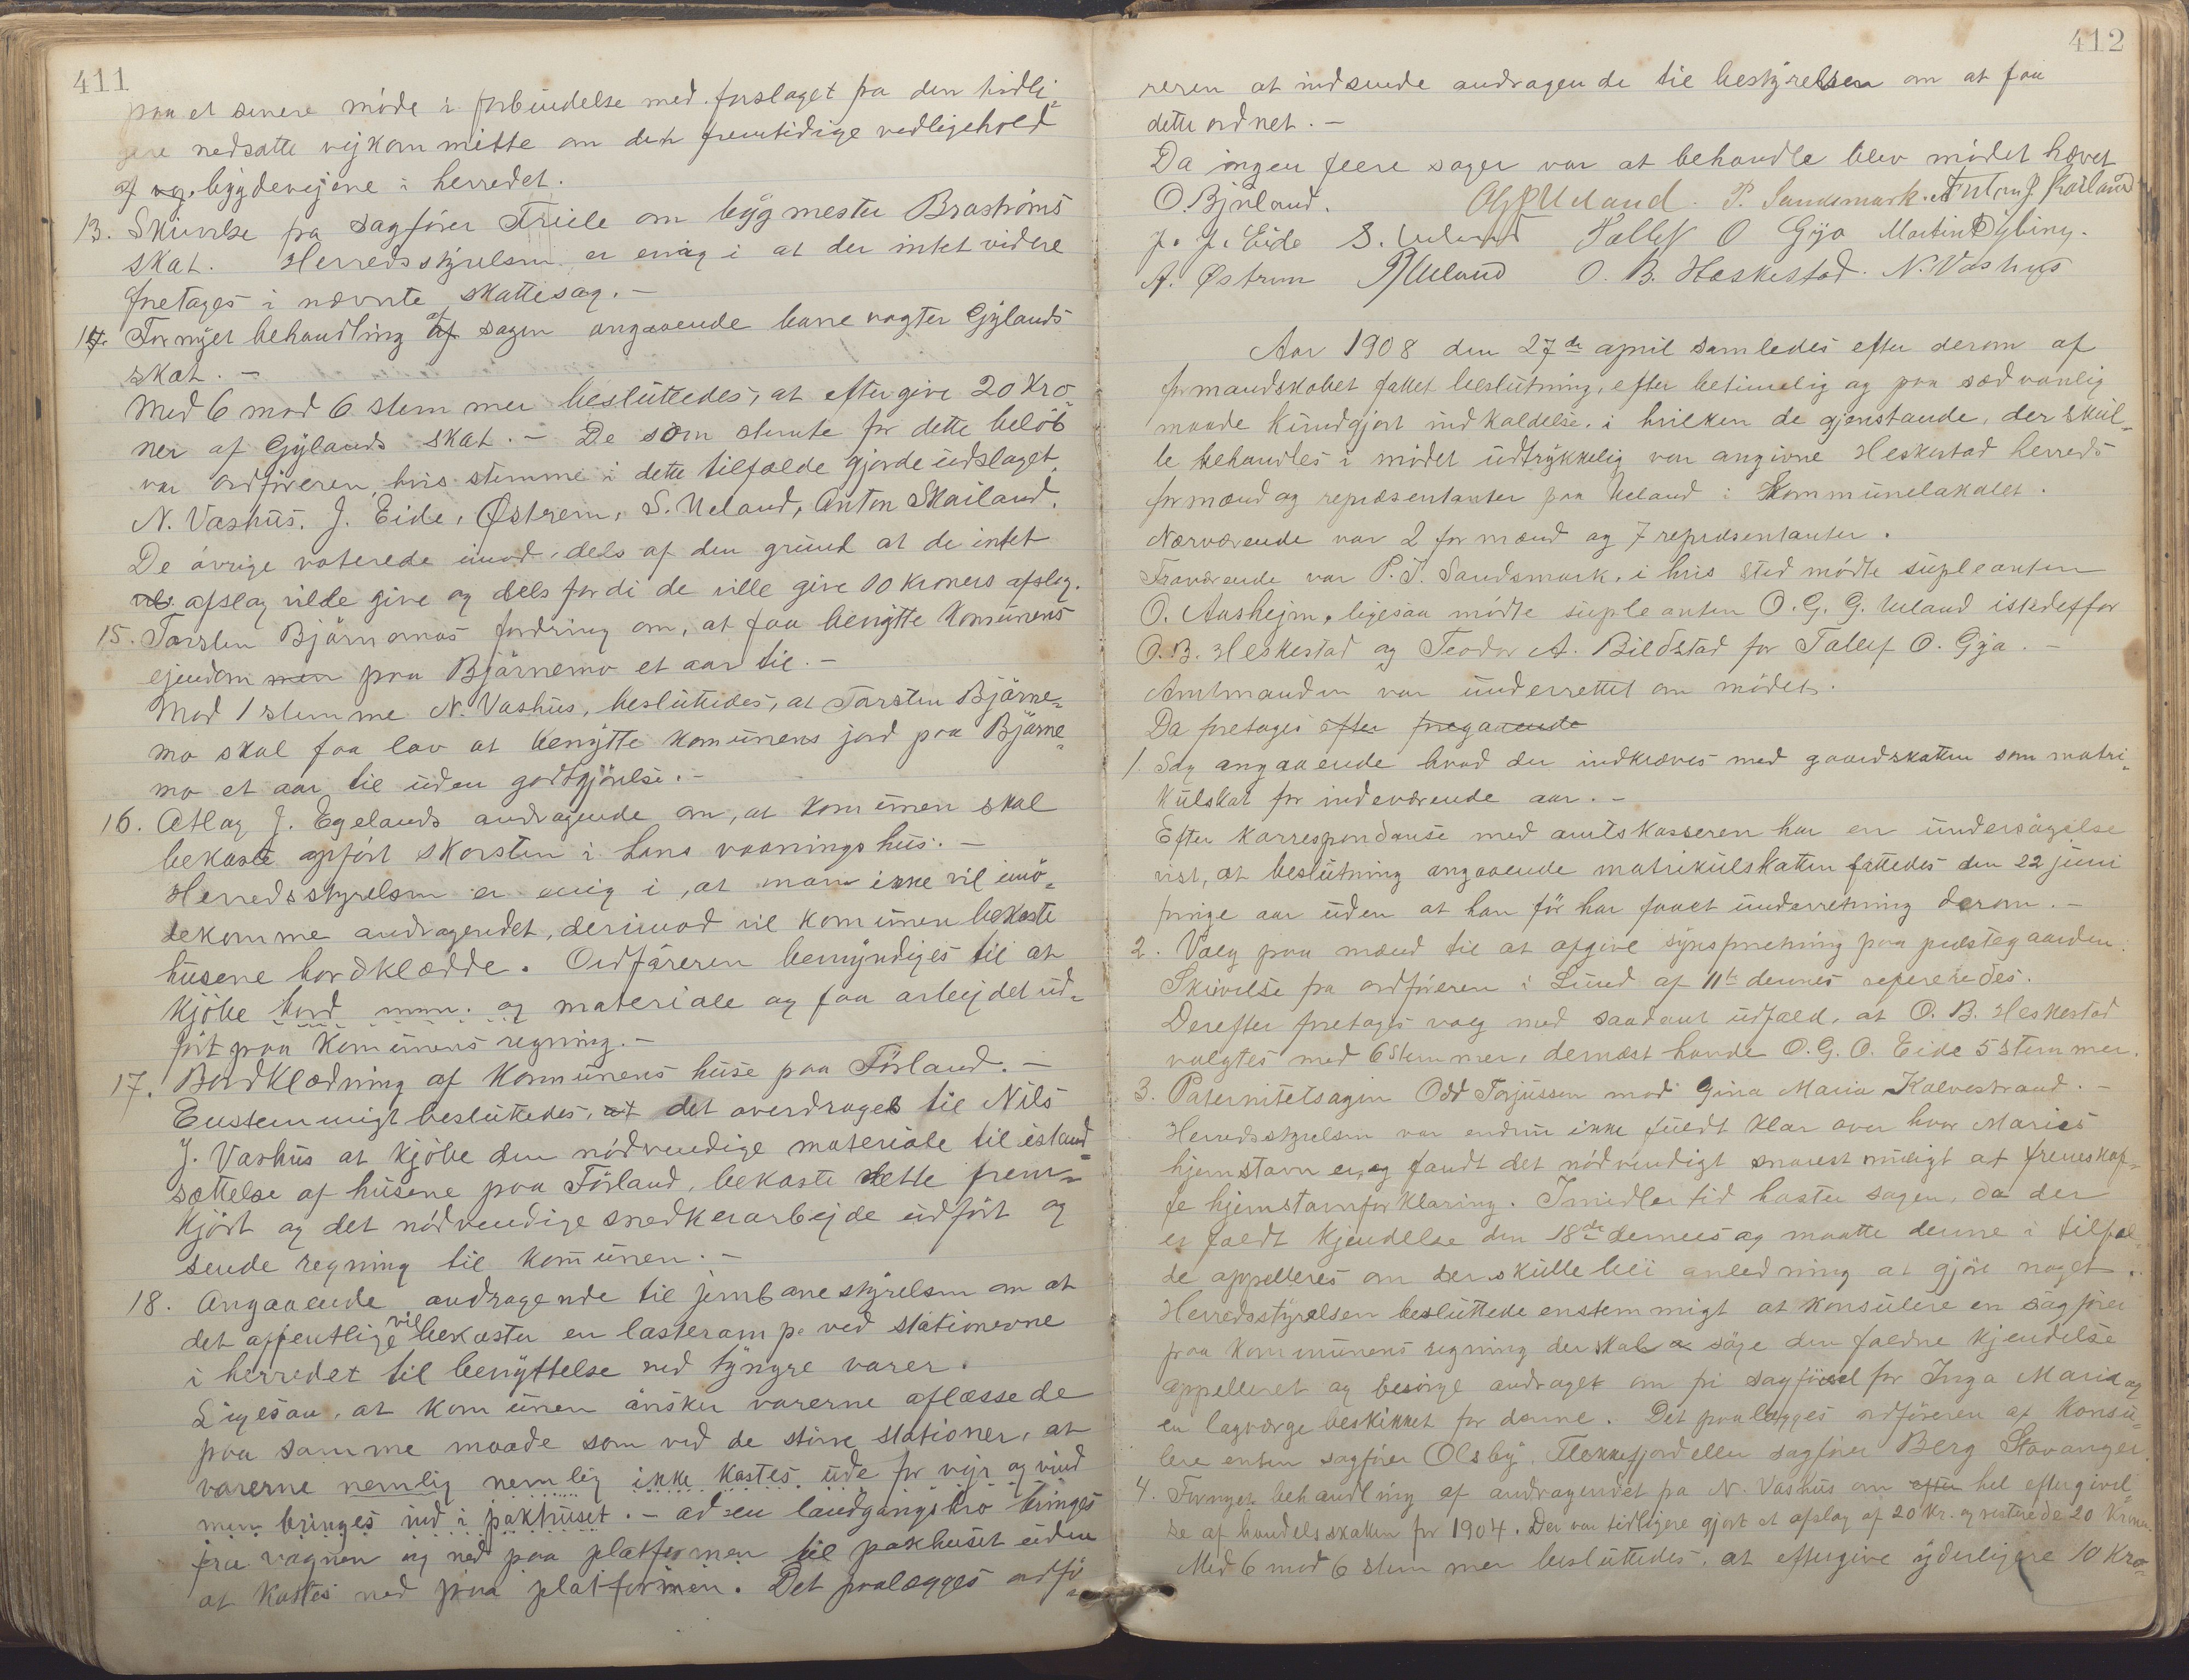 411
paa et senere møde i forbindelse med forslaget fra den tidli-
gere nedsatte vejkommitte om den fremtidige vedligehold
af bygdevejene i herredet.
13. Skrivelse fra sagfører Friele om bygmester Brastrøms
skat. Herredsstyrelsen er enig i at der intet videre
foretages i nævnte skattesag. -
14. Fornyet behandling af sagen angaaende banevogter Gylands
skat. -
Med 6 mod 6 stemmer besluttedes, at eftergive 20 Kro-
ner af Gylands skat. - De som stemte for dette beløb
var ordføreren, hvis stemme i dette tilfælde gjorde udslaget,
N. Vashus, J. Eide, Østrem, S. Ueland, Anton Skailand.
De øvrige voterede imod, dels af den grund at de intet
afslag vilde give og dels fordi de ville give 10 kroners afslag.
15. Torsten Bjørnemos fordring om, at faa benytte Komunens
ejendom paa Bjørnemo et aar til. -
Mod 1 stemme N. Vashus, besluttedes, at Torsten Bjørne-
mo skal faa lov at benytte komunens jord paa Bjørne-
mo et aar til uden godtgjørelse. -
16. Atlag J. Egelands andragende om, at komunen skal
bekoste opført skorsten i hans vaaningshus. -
Herredsstyrelsen er enig i, at man ikke vil imø-
dekomme andragendet, derimod vil komunen bekoste
husene bordklædde. Ordføreren bemyndiges til at
kjøbe bord mm. og materiale og faa arbejdet ud-
ført paa Komunens regning. -
17. Bordklædning af Komunens huse paa Førland. -
Enstemmigt besluttedes, at det overdrages til Nils
J. Vashus at kjøbe den nødvendige materiale til istand-
sættelse af husene paa Førland, bekoste dette frem-
kjørt og det nødvendige snedkerarbejde udført og
sende regning til komunen. -
18. Angaaende andragende til jernbanestyrelsen om at
det offentlige vil bekoster en lasterampe ved stationerne
i herredet til benyttelse ved tyngre varer.
Ligesaa, at komunen ønsker varerne aflæssede
paa samme maade som ved de større stationer, at
varerne nemlig nemlig ikke kastes ude for vejr og vind
men bringes ind i pakhuset. - ad en landgangsbro bringes
fra vognen og ned paa platformen til pakhuset uden
at kastes ned paa platformen. Det paalægges ordfø-
412
reren at indsende andragende til bestyrelsen om at faa
dette ordnet. -
Da ingen flere sager var at behandle blev mødet hævet
O. Bjnland. P. Sandsmark. Anton J. Skailand
J. J. Eide S. Ueland Tallef O Gya Martin Dybing.
A. Østrem O. B. Heskestad. N. Vashus
Aar 1908 den 27de april samledes efter derom af
formandskabet fattet beslutning, efter betimelig og paa sædvanlig
maade kundgjort indkaldelse, i hvilken de gjenstande, der skul-
le behandles i mødet udtrykkelig var angivne Heskestad herreds
formænd og repræsentanter paa Ueland i Kommunelokalet.
Nærværende var 2 formænd og 7 repræsentanter.
Fraværende var P. T. Sandsmark, i hvis sted mødte supleanten
O. Aashejm, ligesaa mødte supleanten O. G. G. Ueland istedetfor
O. B. Heskestad og Teodor A. Bildstad for Tallef O. Gya. -
Amtmanden var underrettet om mødet.
Da foretages efter foregaaende
1. Sag angaaende hvad der indkræves med gaardskatten som matri-
kulskat for indeværende aar. -
Efter korrespondanse med amtskasseren har en undersøgelse
vist, at beslutning angaaende matrikulskatten fattedes den 22 juni
forrige aar uden at han før har faaet underretning derom. -
2. Valg paa mænd til at afgive synsforretning paa præstegaarden.
Skrivelse fra ordføreren i Lund af 11te dennes refereredes.
Derefter foretages valg med saadant udfald, at O. B. Heskestad
valgtes med 6 stemmer, dernæst havde O. G. O. Eide 5 stemmer.
3. Paternitetsagen Odd Torjussen mod Gina Maria Kalvestrand. -
Herredsstyrelsen var endnu ikke fuldt klar over hvor Maries
hjemstavn er, og fandt det nødvendigt snarest muligt at fremskaf-
fe hjemstavnforklaring. Imidlertid haster sagen, da der
er faldt kjendelse den 18de dennes og maatte denne i tilfæl-
de appelleres om der skulle bli anledning at gjøre noget.
Herredsstyrelsen besluttede enstemmigt at konsulere en sagfører
paa kommunens regning der skal søge den faldne kjendelse
appelleret og besørge andraget om fri sagførsel for Inga Maria og
en lagværge beskikket for denne. Det paalægges ordføreren at konsu-
lere enten sagfører Olsby, Flekkefjord eller sagfører Berg Stavanger.
4. Fornyet behandling af andragendet fra N. Vashus om efter hel eftergivel-
se af handelsskatten for 1904. Der var tidligere gjort et afslag af 20 Kr. og resterede 20 Kroner.
Med 6 mod 6 stemmer besluttedes, at eftergive yderligere 10 Kro-